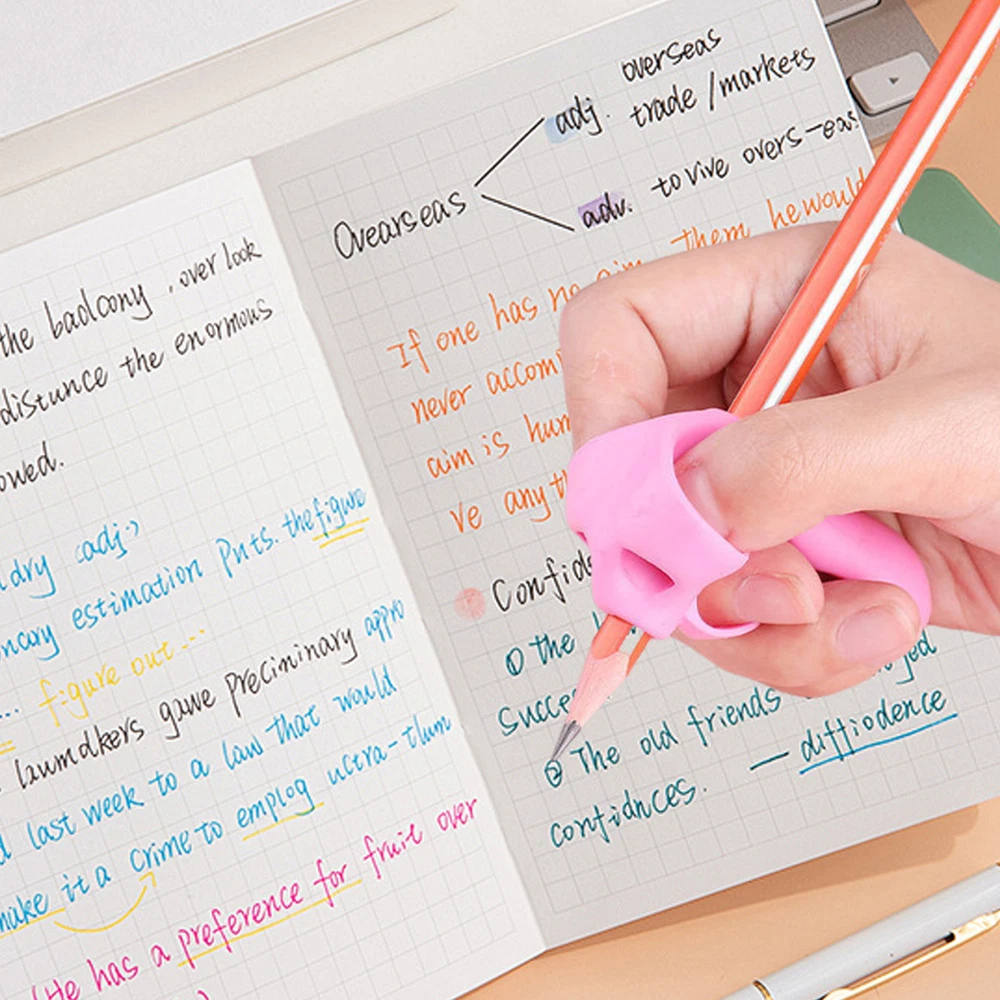 the badcony , over look
distunce the enormous
owed.
dry (adj)
nary estimation pnts. the figure
... figure out ...
lawmdkers gawe precininary appro
d last week to a law that would
make it a crime to emplog uctra-tlum
(He has a preference for fruit over
Ovearseas
adj. overseas
trade / markets
adv. to vive overs-eas
If one has no aim them he would
never accom
aim is hum
ve any th
Confid
① the
Succes
② The old friends ged
confidnces. — diffiodence